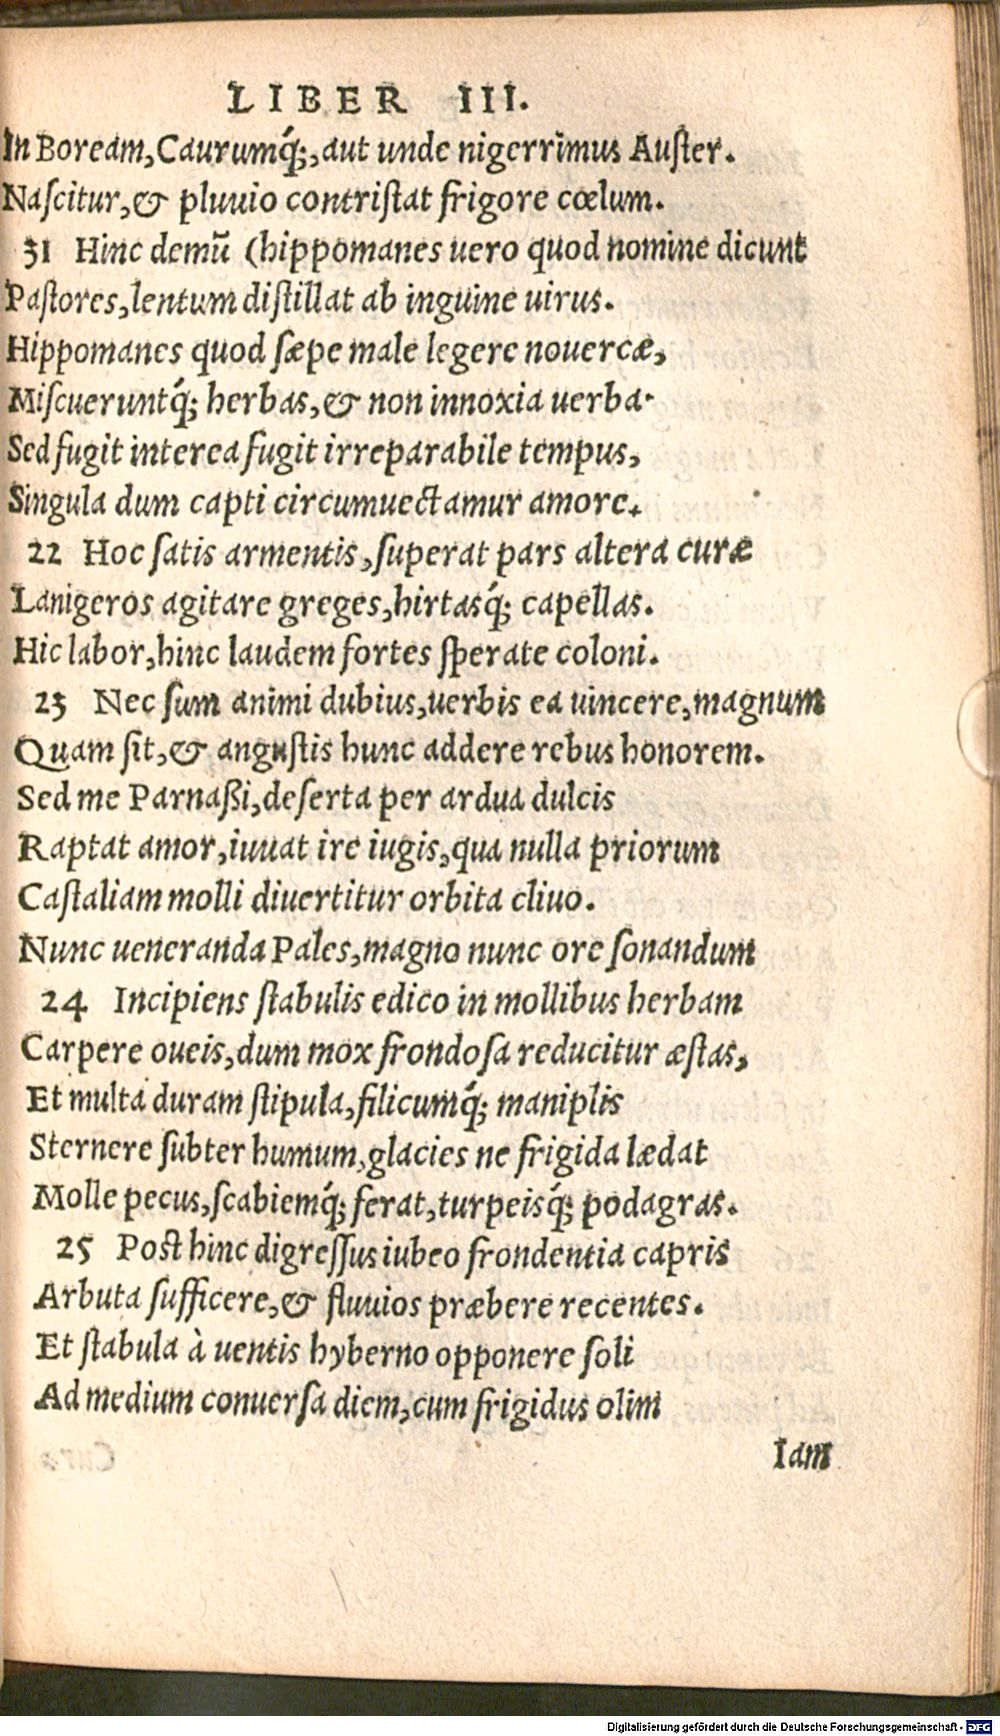 LIBER III.
In Boream, Caurumq́;, aut unde nigerrimus Auster.
Nascitur, & pluuio contristat frigore cœlum.
31 Hinc demũ (hippomanes uero quod nomine dicunt
Pastores, lentum distillat ab inguine uirus.
Hippomanes quod sæpe male legere nouercæ,
Miscueruntq́; herbas, & non innoxia uerba.
Sed fugit interea fugit irreparabile tempus,
Singula dum capti circumuectamur amore.
22 Hoc satis armentis, superat pars altera curæ
Lanigeros agitare greges, hirtasq́; capellas.
Hic labor, hinc laudem fortes sperate coloni.
23 Nec sum animi dubius, uerbis ea uincere, magnum
Quam sit, & angustis hunc addere rebus honorem.
Sed me Parnaßi, deserta per ardua dulcis
Raptat amor, iuuat ire iugis, qua nulla priorum
Castaliam molli diuertitur orbita cliuo.
Nunc ueneranda Pales, magno nunc ore sonandum
24 Incipiens stabulis edico in mollibus herbam
Carpere oueis, dum mox frondosa reducitur æstas,
Et multa duram stipula, filicumq́; maniplis
Sternere subter humum, glacies ne frigida lædat
Molle pecus, scabiemq́; ferat, turpeisq́; podagras.
25 Post hinc digressus iubeo frondentia capris
Arbuta sufficere, & fluuios præbere recentes.
Et stabula à uentis hyberno opponere soli
Ad medium conuersa diem, cum frigidus olim
Iam
Digitalisierung gefördert durch die Deutsche Forschungsgemeinschaft - DFG